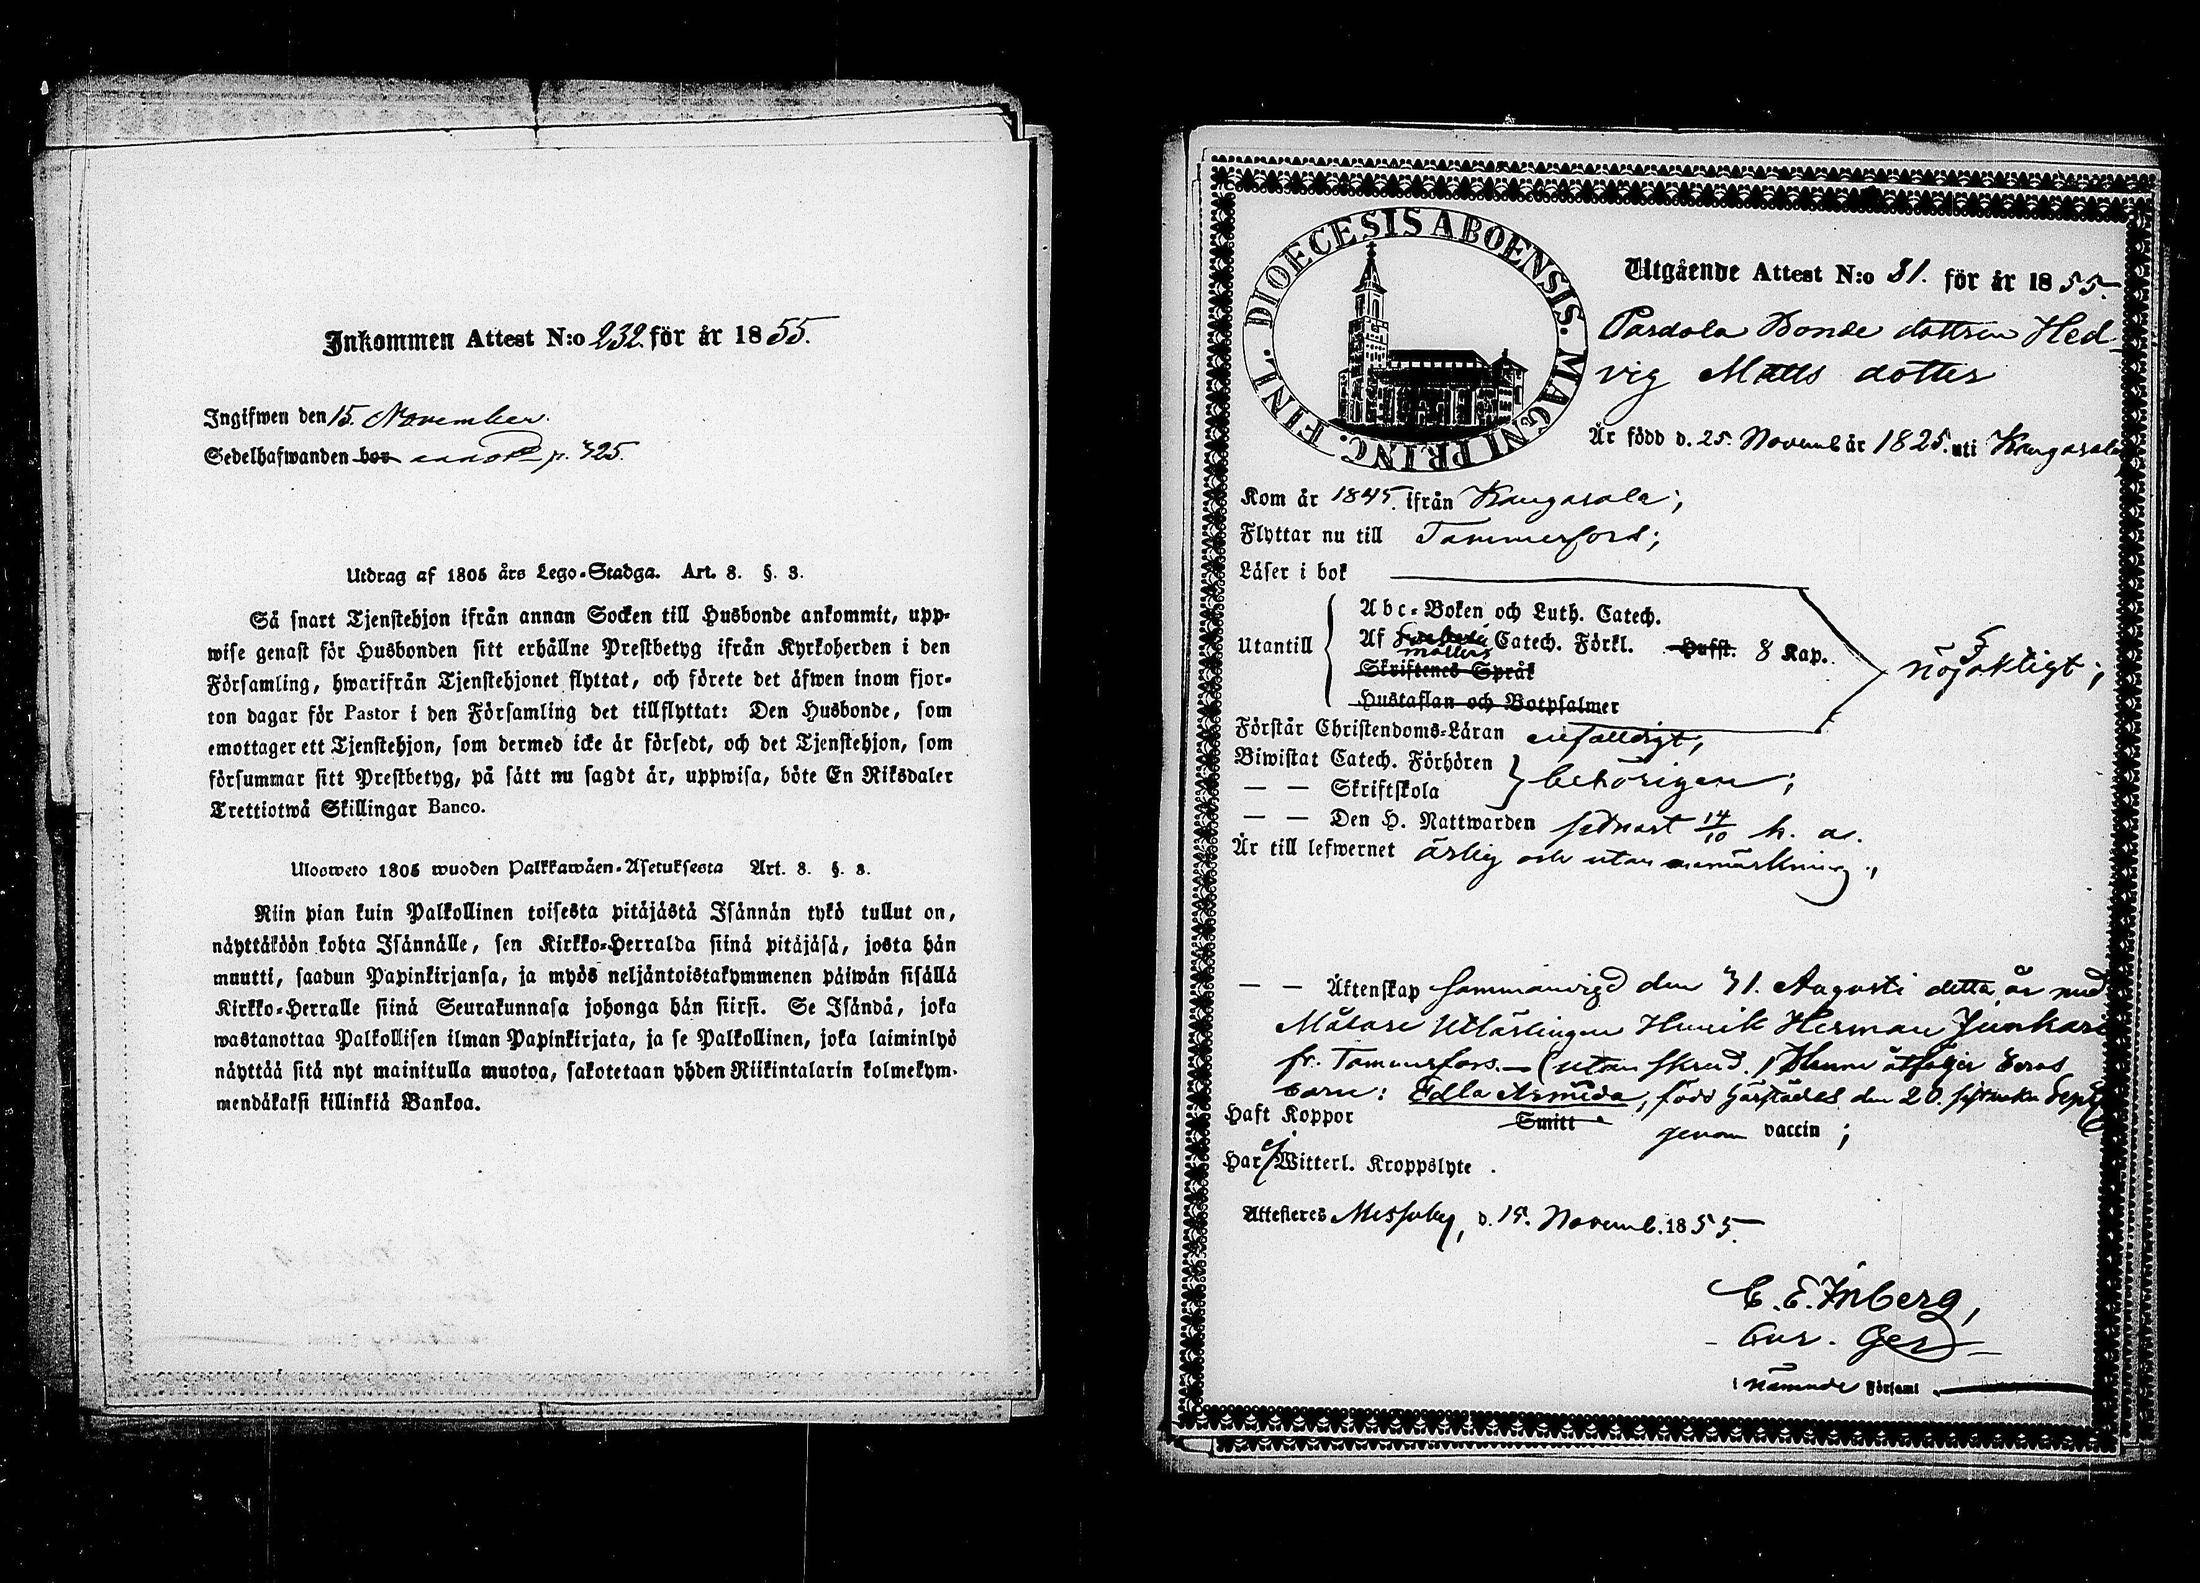 Inkommen Attest N:o 232. för år 1855.
Ingifwen den 15. November.
Sedelhafwanden bor p. 425.
Utdrag af 1805 års Lego-Stadga. Art. 8. §. 3.
Så snart Tjenstehjon ifrån annan Socken till Husbonde ankommit, upp-
wise genast för Husbonden sitt erhållne Prestbetyg ifrån Kyrkoherden i den
Församling, hwarifrån Tjenstehjonet flyttat, och förete det äfwen inom fjor-
ton dagar för Pastor i den Församling det tillflyttat: Den Husbonde, som
emottager ett Tjenstehjon, som dermed icke är försedt, och det Tjenstehjon, som
försummar sitt Prestbetyg, på sätt nu sagdt är, uppwisa, böte En Riksdaler
Trettiotwå Skillingar Banco.
Ulosweto 1805 wuoden Palkkawäen-Asetuksesta Art. 8. §. 3.
Niin pian kuin Palkollinen toisesta pitäjästä Isännän tykö tullut on,
näyttäköön kohta Isännälle, sen Kirkko-Herralda siinä pitäjäsä, josta hän
muutti, saadun Papinkirjansa, ja myös neljäntoistakymmenen päiwän sisällä
Kirkko-Herralle siinä Seurakunnasa johonga hän siirsi. Se Isändä, joka
wastanottaa Palkollisen ilman Papinkirjata, ja se Palkollinen, joka laiminlyö
näyttää sitä nyt mainitulla muotoa, sakotetaan yhden Riikintalarin kolmekym-
mendäkaksi killinkiä Bankoa.
DIOECESIS ABOENSIS. MAGNI PRINC. FINL.
Utgående Attest N:o 81. för år 1855.
Pardola Bonde dottren Hed-
vig Matts dotter
Är född d. 25. Novemb år 1825. uti Kangasala
Kom år 1845. ifrån Kangasala;
Flyttar nu till Tammerfors;
Läser i bok
Utantill
Abc-Boken och Luth. Catech.
Af Svebelii Möllers Catech. Förkl. Hufst. 8 Kap.
Skriftenes Språk
Hustaflan och Botpsalmer
nöjaktigt;
Förstår Christendoms-Läran enfaldigt;
Biwistat Catech. Förhören
— — Skriftskola
behörigen;
— — Den H. Nattwarden sednast 14/10 h. a.
Är till lefwernet ärlig och utan anmärkning;
— — Äktenskap sammanvigd den 31. Augusti detta år med
Målare Utlärlingen Henrik Herman Junkari
fr. Tammerfors.— (utan skrud.) Henne åtföljer deras
barn: Edla Armida, född härstädes den 20. sistvikne Sept.
Haft Koppor Smitt genom vaccin;
Har ej Witterl. Kroppslyte.
Attesteres Messuby, d. 15. Novemb. 1855.
C. E. Inberg,
- Cur. Ger -
i nämnde Församl